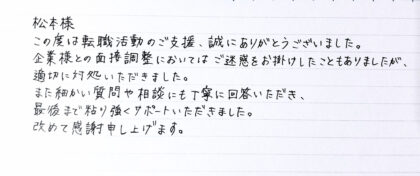 松本様
この度は転職活動のご支援、誠にありがとうございました。
企業様との面接調整においてはご迷惑をお掛けしたこともありましたが、
適切に対処いただきました。
また細かい質問や相談にも丁寧に回答いただき、
最後まで粘り強くサポートいただきました。
改めて感謝申し上げます。